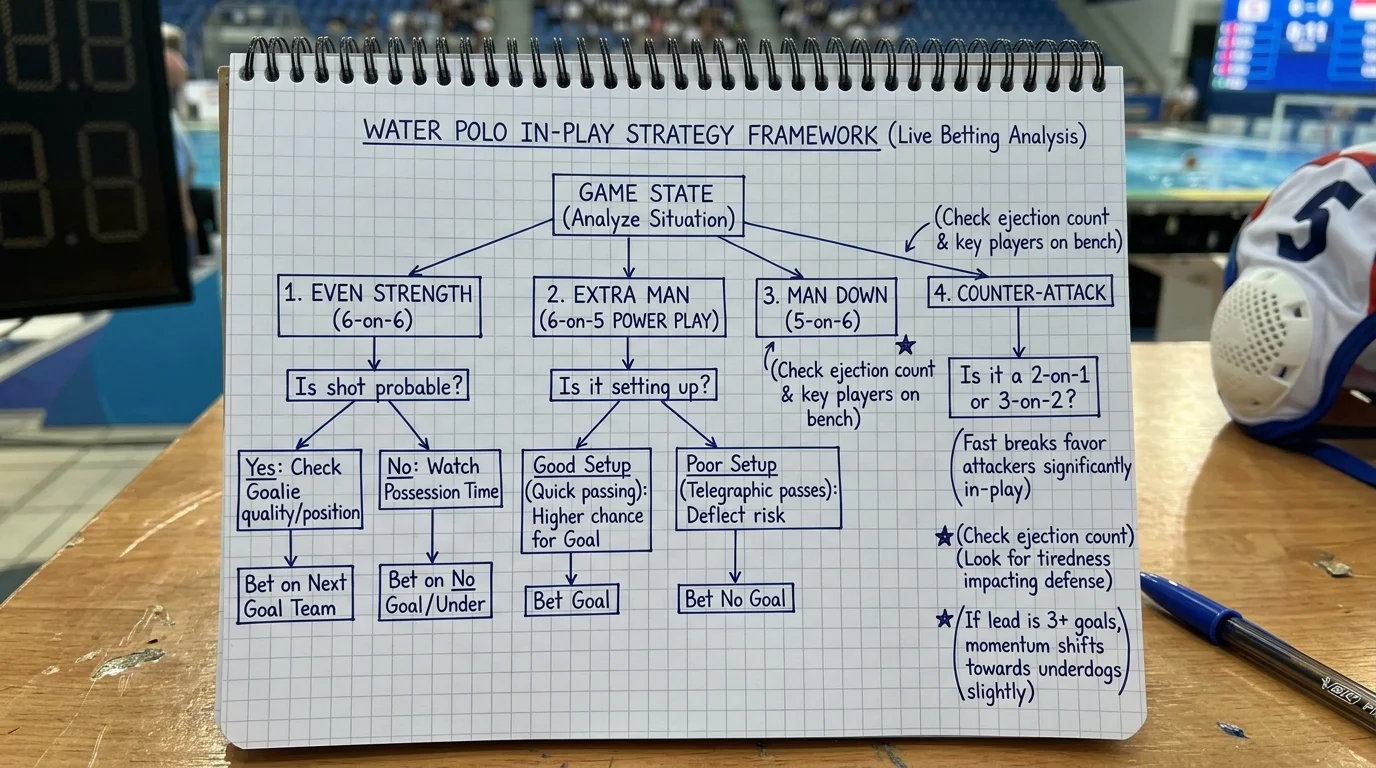 WATER POLO IN-PLAY STRATEGY FRAMEWORK (Live Betting Analysis)
GAME STATE
(Analyze Situation)
(Check ejection count
& key players on bench)
1. EVEN STRENGTH
(6-on-6)
2. EXTRA MAN
(6-on-5 POWER PLAY)
3. MAN DOWN
(5-on-6)
4. COUNTER-ATTACK
Is shot probable?
Is it setting up?
(Check ejection count
& key players on
bench)
Is it a 2-on-1
or 3-on-2?
Yes: Check
Goalie
quality/position
No: Watch
Possession Time
Good Setup
(Quick passing):
Higher chance
for Goal
Poor Setup
(Telegraphic passes):
Deflect risk
(Fast breaks favor
attackers significantly
in-play)
Bet on Next
Goal Team
Bet on No
Goal/Under
Bet Goal
Bet No Goal
(Check ejection count)
(Look for tiredness
impacting defense)
(If lead is 3+ goals,
momentum shifts
towards underdogs
slightly)
5
BIC